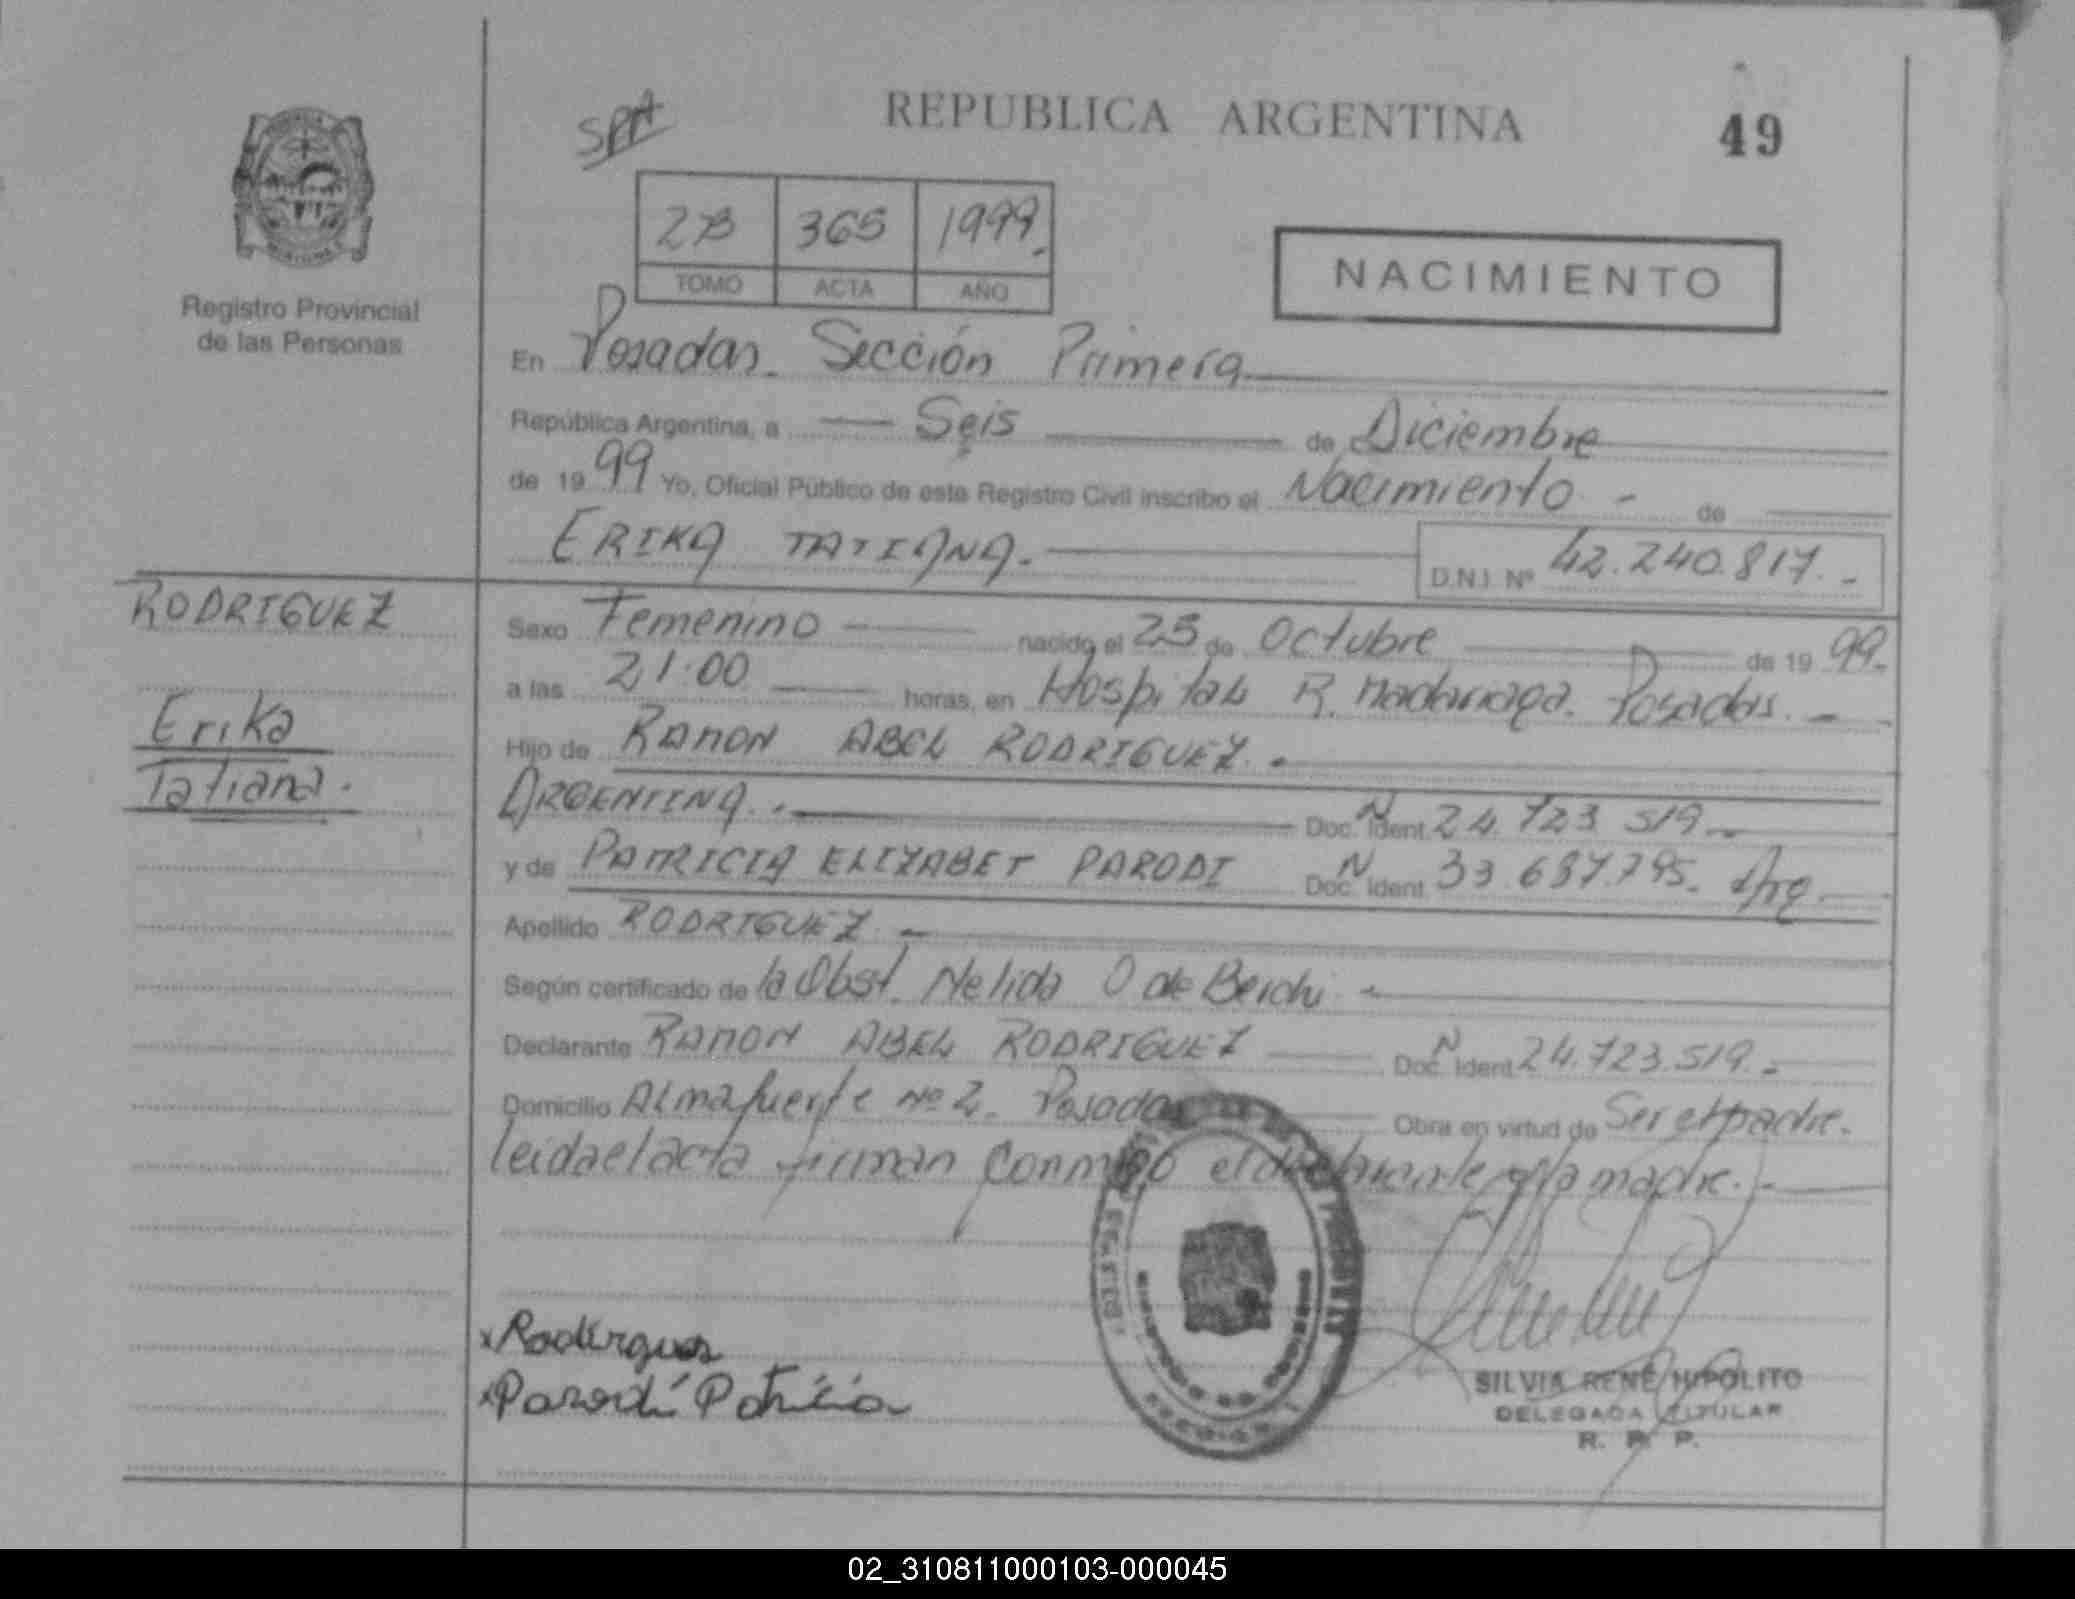 REPUBLICA ARGENTINA
49
2B 365 1999.
TOMO ACTA AÑO
NACIMIENTO
Registro Provincial
de las Personas
En Posadas. Sección Primera
República Argentina, a Seis de Diciembre
de 1999 Yo, Oficial Público de este Registro Civil inscribo el Nacimiento - de
ERIKA TATIANA.- D.N.I. Nº 42.240.817.-
RODRIGUEZ
Erika
Tatiana.
Sexo Femenino nacido el 25 de Octubre de 1999.
a las 21:00 horas, en Hospital R. Madariaga. Posadas.-
Hijo de RAMON ABEL RODRIGUEZ.
ARGENTINA. Doc. Ident N 24.723.519.-
y de PATRICIA ELIZABET PARODI Doc. Ident N 33.637.795. Arg
Apellido RODRIGUEZ.-
Según certificado de la Obst. Nelida O de Berchi
Declarante RAMON ABEL RODRIGUEZ Doc. Ident N 24.723.519.-
Domicilio Almafuerte Nº 2. Posadas Obra en virtud de Ser el padre.
leida el acta firman conmigo el declarante y la madre.-
x Rodrigues
x Parodi Patricia
SILVIA RENE HIPOLITO
DELEGADA TITULAR
R. P. P.
02_310811000103-000045